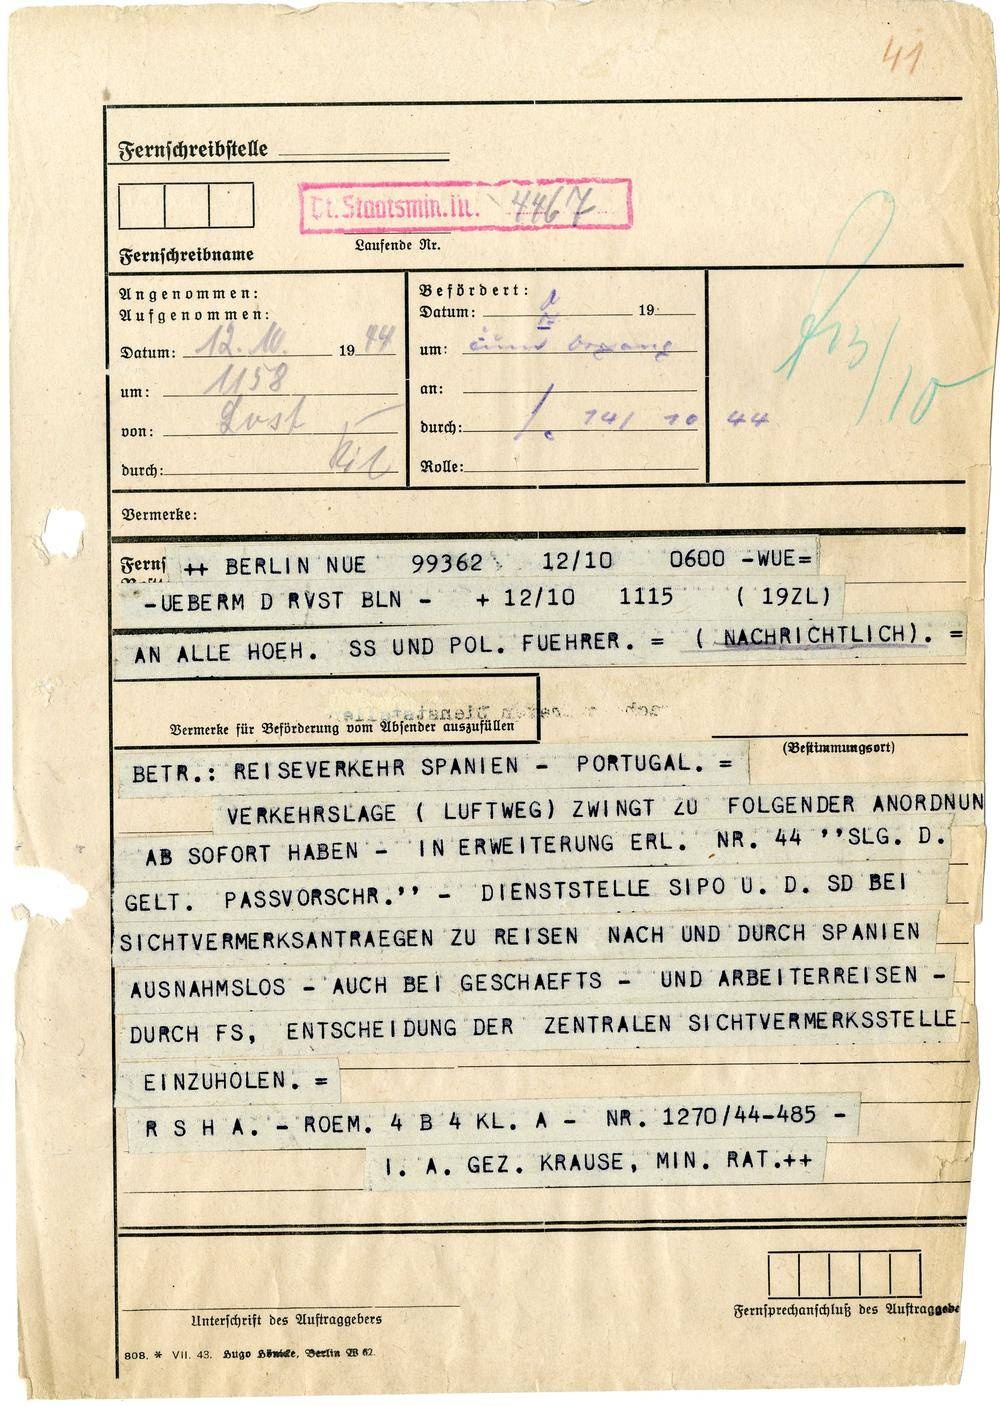 41
Fernschreibstelle
Dt. Staatsmin. 4467
Laufende Nr.
Fernschreibname
Angenommen:
Aufgenommen:
Datum: 12. 10. 1944
um: 1158
von:
durch:
Befördert:
Datum: 19
um:
an:
durch: 14/ 10 44
Rolle:
13/10
Vermerke:
Ferns
++ BERLIN NUE 99362 12/10 0600 -WUE=
-UEBERM D RVST BLN - + 12/10 1115 ( 19ZL)
AN ALLE HOEH. SS UND POL. FUEHRER. = ( NACHRICHTLICH). =
Vermerke für Beförderung vom Absender auszufüllen
(Bestimmungsort)
BETR.: REISEVERKEHR SPANIEN - PORTUGAL. =
VERKEHRSLAGE ( LUFTWEG) ZWINGT ZU FOLGENDER ANORDNUN
AB SOFORT HABEN - IN ERWEITERUNG ERL. NR. 44 ’’SLG. D.
GELT. PASSVORSCHR.’’ - DIENSTSTELLE SIPO U. D. SD BEI
SICHTVERMERKSANTRAEGEN ZU REISEN NACH UND DURCH SPANIEN
AUSNAHMSLOS - AUCH BEI GESCHAEFTS - UND ARBEITERREISEN -
DURCH FS, ENTSCHEIDUNG DER ZENTRALEN SICHTVERMERKSSTELLE-
EINZUHOLEN. =
R S H A. - ROEM. 4 B 4 KL. A - NR. 1270/44-485 -
I. A. GEZ. KRAUSE, MIN. RAT.++
Unterschrift des Auftraggebers
Fernsprechanschluß des Auftraggebe
808. * VII. 43. Hugo Berlin W 62.